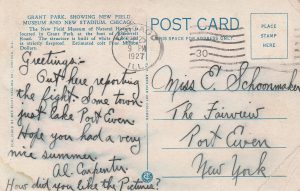 GRANT PARK, SHOWING NEW FIELD
MUSEUM AND NEW STADIUM, CHICAGO.
The New Field Museum of Natural History is
located in Grant Park, at the foot of Roosevelt
Road. The structure is build of white marble and
is strictly fireproof. Estimated cost Five Million
Dollars.
POST CARD
THIS SPACE FOR ADDRESS ONLY
9 PM
1927
ILL.
30
Greetings:-
Out here reporting
the fight. Some town
just like Port Ewen
Hope you had a very
nice summer.
Al. Carpenter
How did you like the Pictures?
Miss E. Schoonmaker
The Fairview
Port Ewen
New York